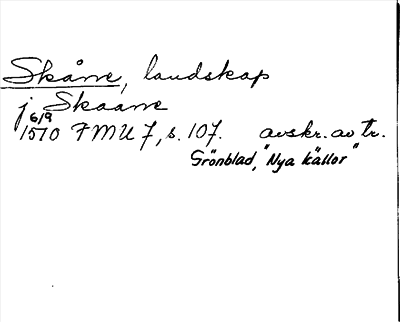 Skåne, landskap
j Skaane
6/9
1510 FMU 7, s. 107. avskr. av tr.
Grönblad, "Nya källor"